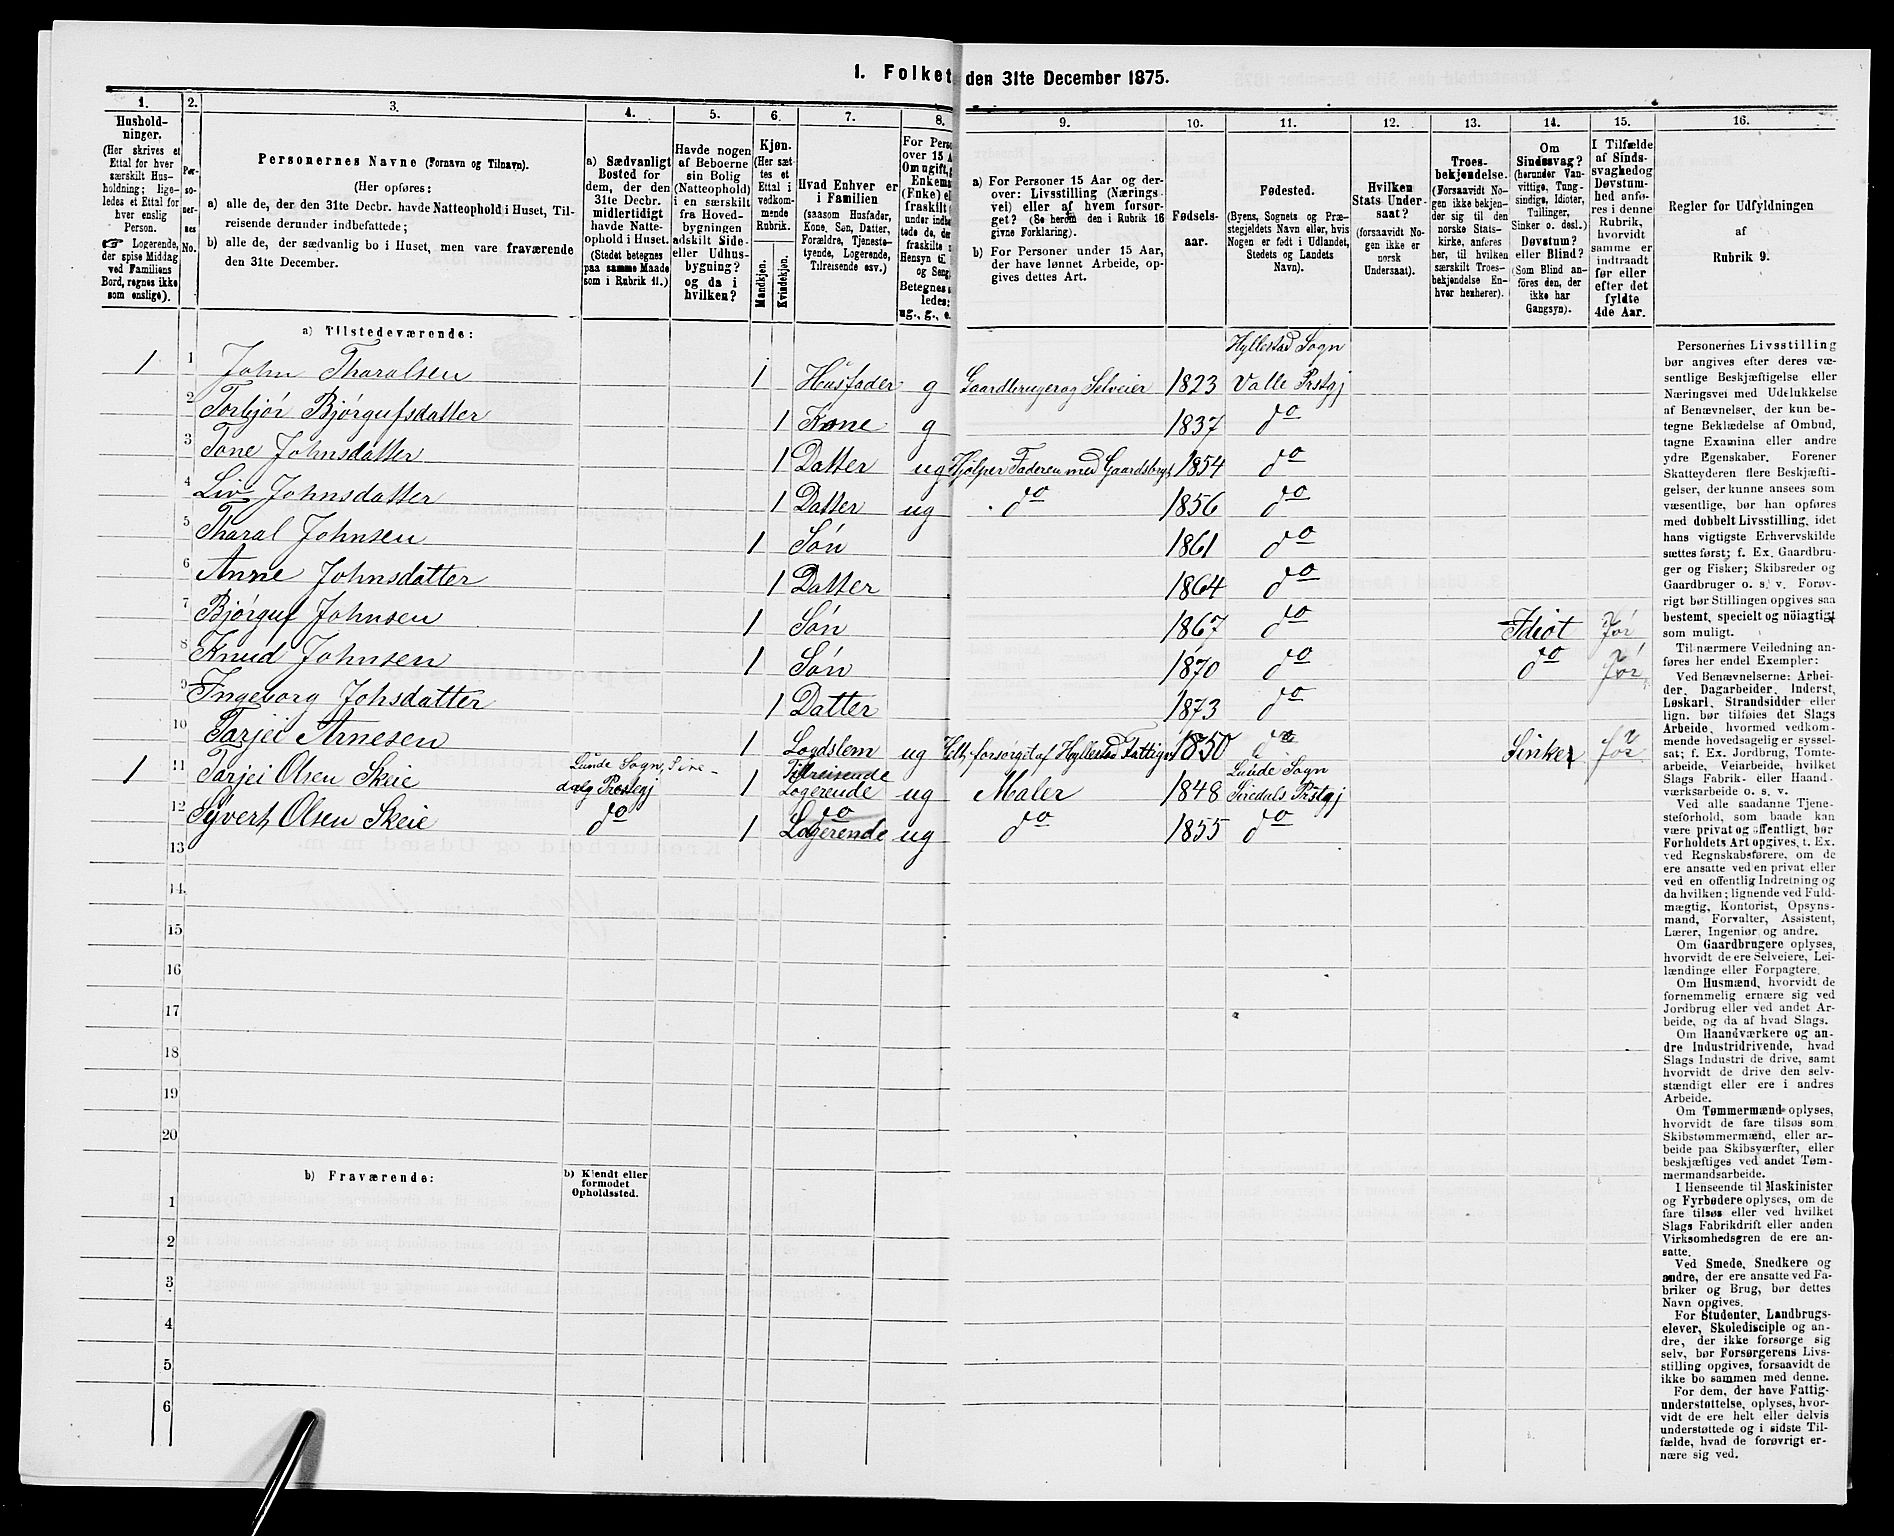 I. Folket den 31te December 1875.
1.
2.
3.
4.
5.
6.
7.
8.
9.
10.
11.
12.
13.
14.
15.
16.
Hushold-
ninger.
(Her skrives et
Ettal for hver
særskilt Hus-
holdning; lige-
ledes et Ettal for
hver enslig
Person.
☞ Logerende,
der spise Middag
ved Familiens
Bord, regnes ikke
som enslige).
Per-
so-
ner-
nes
No.
Personernes Navne (Fornavn og Tilnavn).
(Her opføres:
a) alle de, der den 31te Decbr. havde Natteophold i Huset, Til-
reisende derunder indbefattede;
b) alle de, der sædvanlig bo i Huset, men vare fraværende
den 31te December.
a) Sædvanligt
Bosted for
dem, der den
31te Decbr.
midlertidigt
havde Natte-
ophold i Huset.
(Stedet betegnes
paa samme Maade
som i Rubrik 11.)
Havde nogen
af Beboerne
sin Bolig
(Natteophold)
i en særskilt
fra Hoved-
bygningen
adskilt Side-
eller Udhus-
bygning?
og da i
hvilken?
Kjøn.
(Her sæt-
tes et
Ettal i
vedkom-
mende
Rubrik.
Mandkjøn.
Kvindekjøn.
Hvad Enhver er
i Familien
(saasom Husfader,
Kone, Søn, Datter,
Forældre, Tjeneste-
tyende, Logerende,
Tilreisende osv.)
For Perso
over 15 A
Om ugift,
Enkem
(Enke) el
fraskilt
under indbe
tede de,
fraskilte
Hensyn til
og Seng,
Betegnes s
ledes:
ug., g., e.
a) For Personer 15 Aar og der-
over: Livsstilling (Nærings-
vei) eller af hvem forsør-
get? (Se herom den i Rubrik 16
givne Forklaring).
b) For Personer under 15 Aar,
der have lønnet Arbeide, op-
gives dettes Art.
Fødsels-
aar.
Fødested.
(Byens, Sognets og Præ-
stegjeldets Navn eller, hvis
Nogen er født i Udlandet,
Stedets og Landets
Navn).
Hvilken
Stats Under-
saat?
(forsaavidt No-
gen ikke er
norsk
Undersaat).
Troes-
bekjendelse.
(Forsaavidt No-
gen ikke bekjen-
der sig til den
norske Stats-
kirke, anføres
her, til hvilken
særskilt Troes-
bekjendelse En-
hver henhører).
Om
Sindssvag?
(herunder Van-
vittige, Tung-
sindige, Idioter,
Tullinger,
Sinker o. desl.)
Døvstum?
eller Blind?
(Som Blind an-
føres den, der
ikke har
Gangsyn).
I Tilfælde
af Sinds-
svaghed og
Døvstum-
hed anfø-
res i denne
Rubrik,
hvorvidt
samme er
indtraadt
før eller
efter det
fyldte
4de Aar.
Regler for Udfyldningen
af
Rubrik 9.
a) Tilstedeværende:
1 1 John Tharalsen 1 Husfader g Gaardbruger og Selveier 1823 Hyllestad Sogn Valle Prstgj
2 Torbjør Bjørgufsdatter 1 Kone g 1837 do
3 Tone Johnsdatter 1 Datter ug Hjelper Faderen med Gaardsbrug 1854 do
4 Liv Johnsdatter 1 Datter ug do 1856 do
5 Tharal Johnsen 1 Søn 1861 do
6 Anne Johnsdatter 1 Datter 1864 do
7 Bjørguf Johnsen 1 Søn 1867 do Idiot før
8 Knud Johnsen 1 Søn 1870 do do før
9 Ingeborg Johsdatter 1 Datter 1873 do
10 Tarjei Arnesen 1 Lægdslem ug forsørget af Hyllestad Fattig 1850 do Sinker før
1 11 Tarjei Olsen Skeie Lunde Sogn, Sire-
dals Prstgj 1 Tilreisende
Logerende ug Maler 1848 Lunde Sogn
Siredals Prstgj
12 Syvert Olsen Skeie do 1 do
Logerende ug do 1855 do
13
14
15
16
17
18
19
20
b) Fraværende:
b) Kjendt eller
formodet
Opholdssted.
1
2
3
4
5
6
Personernes Livsstilling
bør angives efter deres væ-
sentlige Beskjæftigelse eller
Næringsvei med Udelukkelse
af Benævnelser, der kun be-
tegne Beklædelse af Ombud,
tagne Examina eller andre
ydre Egenskaber. Forener
Skatteyderen flere Beskjæfti-
gelser, der kunne ansees som
væsentlige, bør han opføres
med dobbelt Livsstilling, idet
hans vigtigste Erhvervskilde
sættes først; f. Ex. Gaardbru-
ger og Fisker; Skibsreder og
Gaardbruger o. s. v. Forøv-
rigt bør Stillingen opgives saa
bestemt, specielt og nöiagtigt
som muligt.
Til nærmere Veiledning an-
føres her endel Exempler:
Ved Benævnelserne: Arbei-
der, Dagarbeider, Inderst,
Løskarl, Strandsidder eller
lign. bør tilføies det Slags
Arbeide, hvormed vedkom-
mende hovedsagelig er syssel-
sat; f. Ex. Jordbrug, Tomte-
arbeide, Veiarbeide, hvilket
Slags Fabrik- eller Haand-
værksarbeide o. s. v.
Ved alle saadanne Tjene-
steforhold, som baade kan
være privat og offentligt, bør
Forholdets Art opgives, t. Ex.
ved Regnskabsførere, om de
ere ansatte ved en privat eller
ved en offentlig Indretning og
da hvilken; lignende ved Fuld-
mægtig, Kontorist, Opsyns-
mand, Forvalter, Assistent,
Lærer, Ingeniør og andre.
Om Gaardbrugere oplyses,
hvorvidt de ere Selveiere, Lei-
lændinge eller Forpagtere.
Om Husmænd, hvorvidt de
fornemmelig ernære sig ved
Jordbrug eller ved andet Ar-
beide, og da af hvad Slags.
Om Haandværkere og an-
dre Industridrivende, hvad
Slags Industri de drive, samt
hvorvidt de drive den selv-
stændigt eller ere i andres
Arbeide.
Om Tømmermænd oplyses,
hvorvidt de fare tilsøs som
Skibstømmermænd, eller ar-
beide paa Skibsværfter, eller
beskjæftiges ved andet Tøm-
mermandsarbeide.
I Henseende til Maskinister
og Fyrbødere oplyses, om de
fare tilsøs eller ved hvilket
Slags Fabrikdrift eller anden
Virksomhedsgren de ere an-
satte.
Ved Smede, Snedkere og
andre, der ere ansatte ved Fa-
briker og Brug, bør dettes
Navn opgives.
For Studenter, Landbrugs-
elever, Skoledisciple og an-
dre, der ikke forsørge sig
selv, bør Forsørgerens Livs-
stilling opgives, forsaavidt de
ikke bo sammen med denne.
For dem, der have Fattig-
understøttelse, oplyses, hvor-
vidt de ere helt eller delvis
understøttede og i sidste Til-
fælde, hvad de forøvrigt er-
nære sig ved.